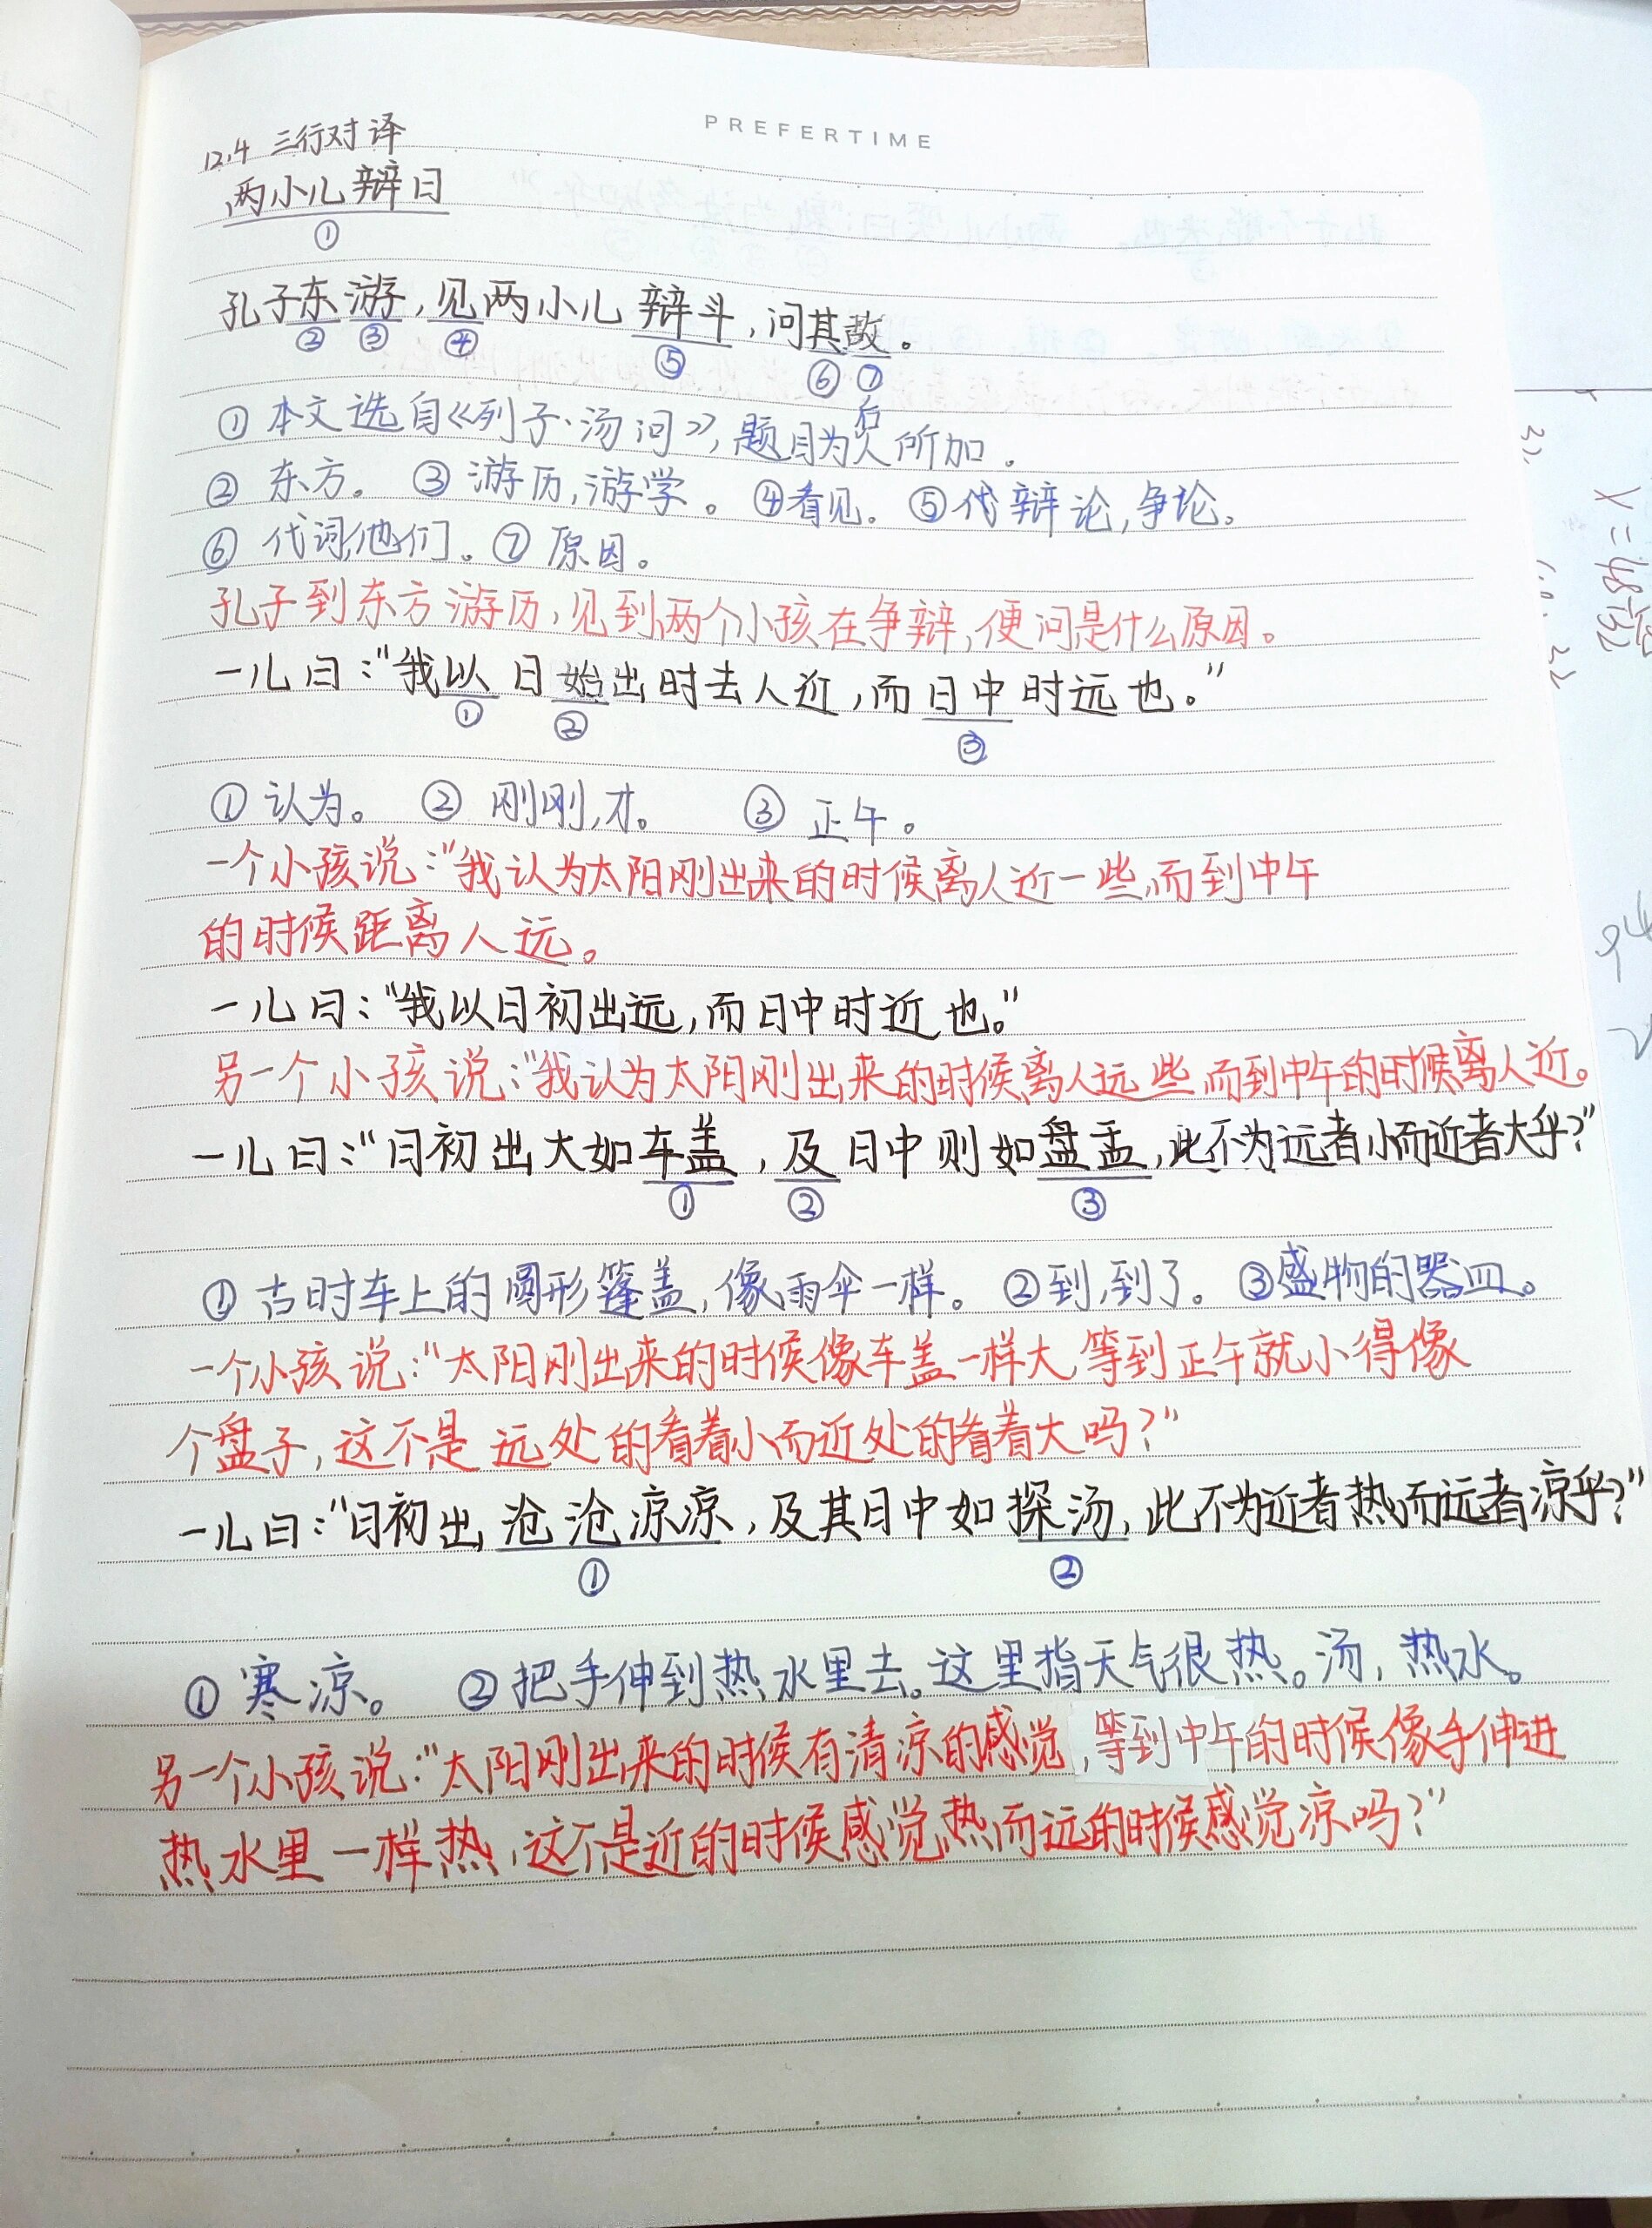 PREFERTIME
12.4 三行对译
两小儿辩日
①
孔子东游,见两小儿辩斗,问其故。
② ③ ④ ⑤ ⑥ ⑦
①本文选自《列子·汤问》,题目为后人所加。
②东方。 ③游历,游学。 ④看见。 ⑤代辩论,争论。
⑥代词,他们。⑦原因。
孔子到东方游历,见到两个小孩在争辩,便问是什么原因。
一儿曰:“我以日始出时去人近,而日中时远也。”
① ② ③
①认为。 ②刚刚,才。 ③正午。
一个小孩说:“我认为太阳刚出来的时候离人近一些,而到中午
的时候距离人远。
一儿曰:“我以日初出远,而日中时近也。”
另一个小孩说:“我认为太阳刚出来的时候离人远些,而到中午的时候离人近。
一儿曰:“日初出大如车盖,及日中则如盘盂,此不为远者小而近者大乎?”
① ② ③
①古时车上的圆形篷盖,像雨伞一样。 ②到,到了。 ③盛物的器皿。
一个小孩说:“太阳刚出来的时候像车盖一样大,等到正午就小得像
个盘子,这不是远处的看着小而近处的看着大吗?”
一儿曰:“日初出沧沧凉凉,及其日中如探汤,此不为近者热而远者凉乎?”
① ②
①寒凉。 ②把手伸到热水里去。这里指天气很热。汤,热水。
另一个小孩说:“太阳刚出来的时候有清凉的感觉,等到中午的时候像手伸进
热水里一样热,这不是近的时候感觉热而远的时候感觉凉吗?”